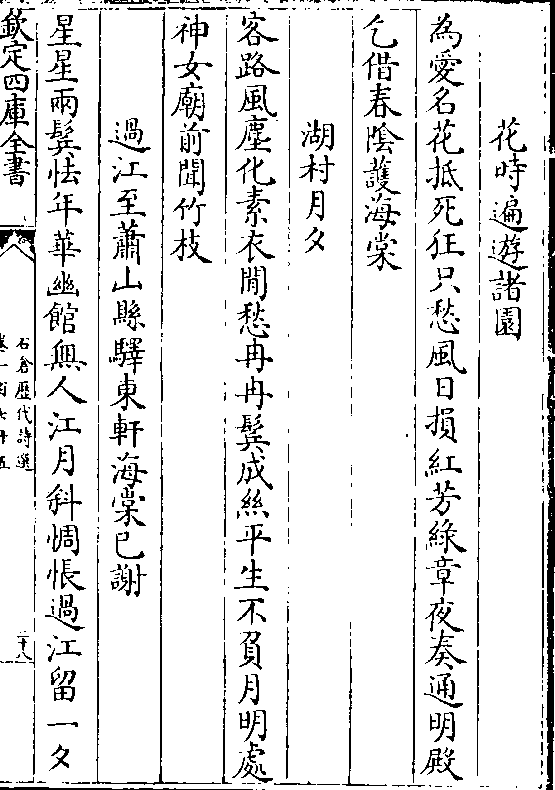 花時遍遊諸園
為愛名花抵死狂只愁風日損紅芳綠章夜奏通明殿
乞借春陰護海棠
湖村月夕
客路風塵化素衣閒愁冉冉鬂成絲平生不負月明處
神女廟前聞竹枝
過江至蕭山縣驛東軒海棠已謝
星星兩鬂怯年華幽館無人江月斜惆悵過江留一夕
欽定四庫全書
石倉歷代詩選
二十八